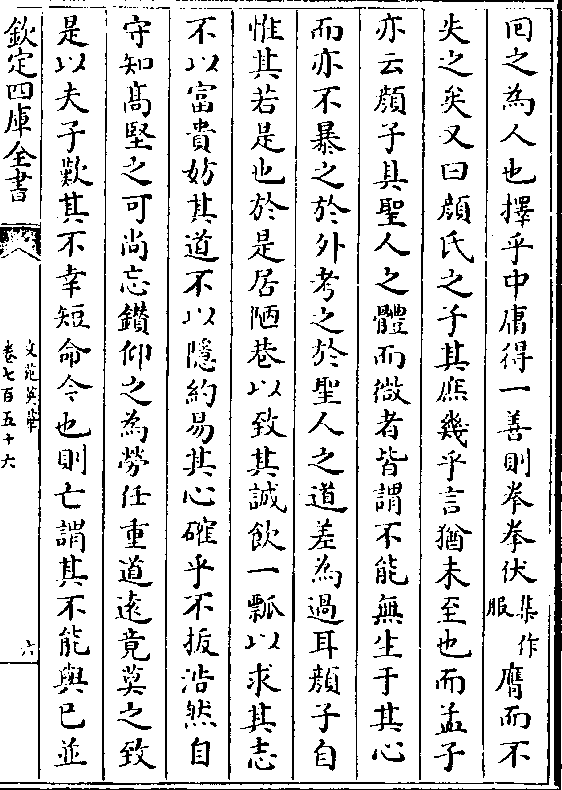 回之為人也擇乎中庸得一善則拳拳伏集作服膺而不
失之矣又曰顔氏之子其庶幾乎言猶未至也而孟子
亦云顔子具聖人之體而微者皆謂不能無生于其心
而亦不暴之於外考之於聖人之道差為過耳顔子自
惟其若是也於是居陋巷以致其誠飲一瓢以求其志
不以富貴妨其道不以隱約易其心確乎不拔浩然自
守知髙堅之可尚忘鑚仰之為勞任重道逺竟莫之致
是以夫子歎其不幸短命今也則亡謂其不能與已並
欽定四庫全書
文苑英華
卷七百五十六
六